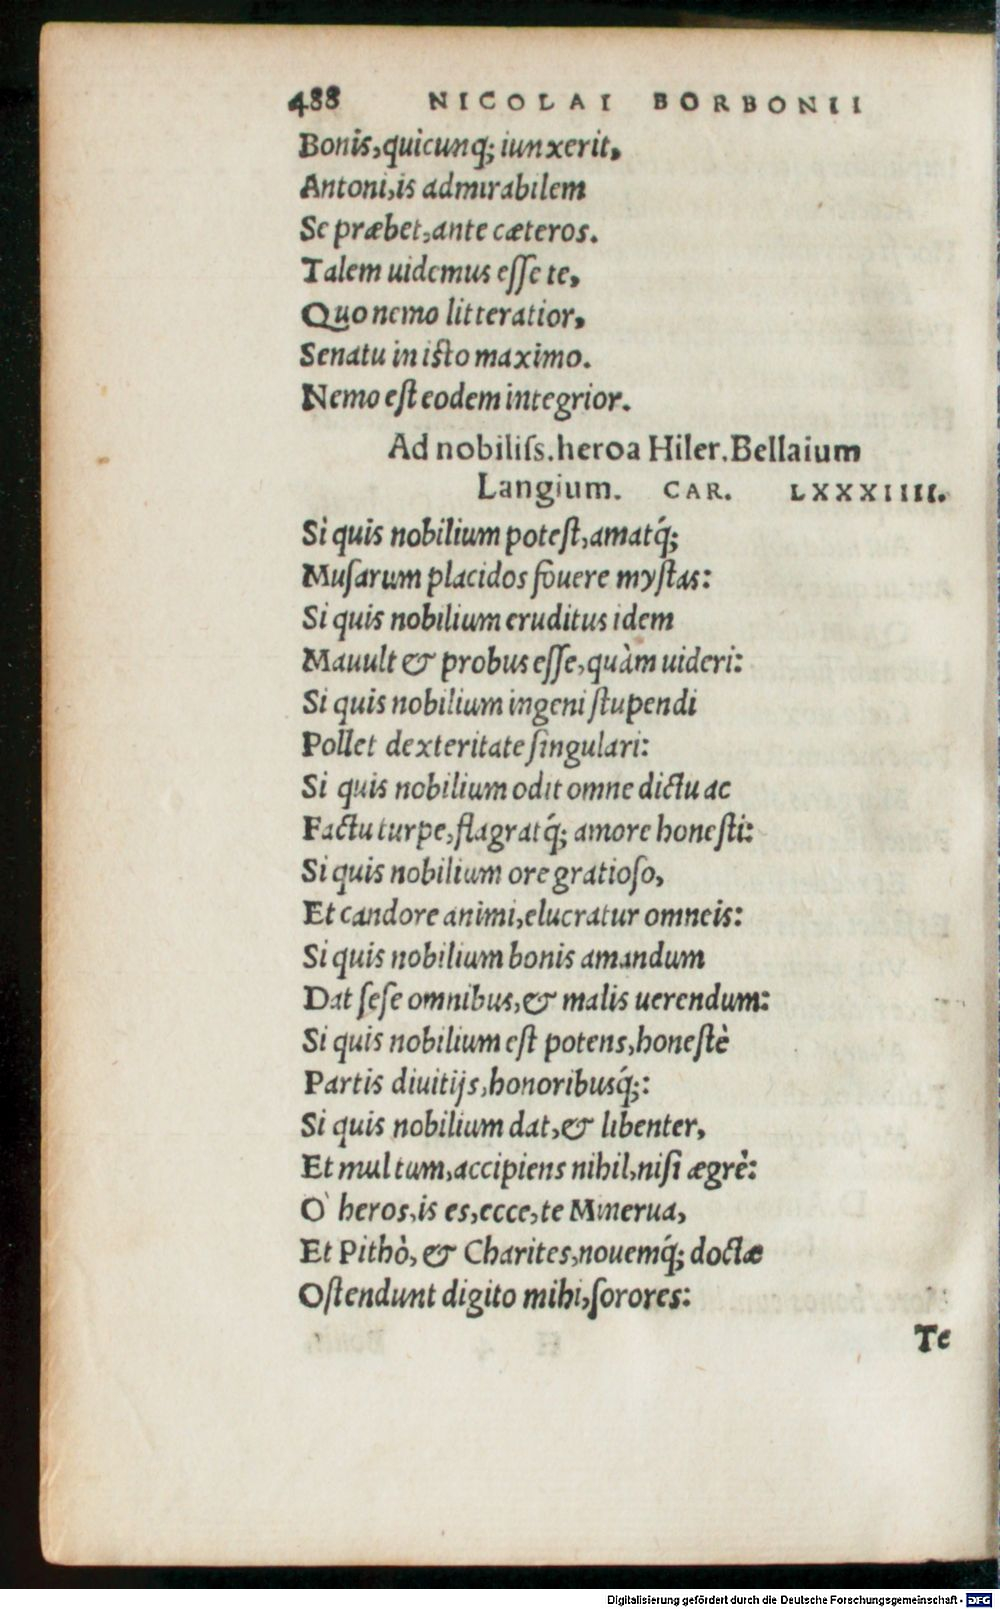 488 NICOLAI BORBONII
Bonis, quicunq; iunxerit,
Antoni, is admirabilem
Se præbet, ante cæteros.
Talem uidemus esse te,
Quo nemo litteratior,
Senatu in isto maximo.
Nemo est eodem integrior.
Ad nobiliss. heroa Hiler. Bellaium
Langium. CAR. LXXXIIII.
Si quis nobilium potest, amatq́;
Musarum placidos fouere mystas:
Si quis nobilium eruditus idem
Mauult & probus esse, quàm uideri:
Si quis nobilium ingeni stupendi
Pollet dexteritate singulari:
Si quis nobilium odit omne dictu ac
Factu turpe, flagratq́; amore honesti:
Si quis nobilium ore gratioso,
Et candore animi, elucratur omneis:
Si quis nobilium bonis amandum
Dat sese omnibus, & malis uerendum:
Si quis nobilium est potens, honestè
Partis diuitijs, honoribusq́;:
Si quis nobilium dat, & libenter,
Et multum, accipiens nihil, nisi ægrè:
O` heros, is es, ecce, te Minerua,
Et Pithò, & Charites, nouemq́; doctæ
Ostendunt digito mihi, sorores:
Te
Digitalisierung gefördert durch die Deutsche Forschungsgemeinschaft - DFG